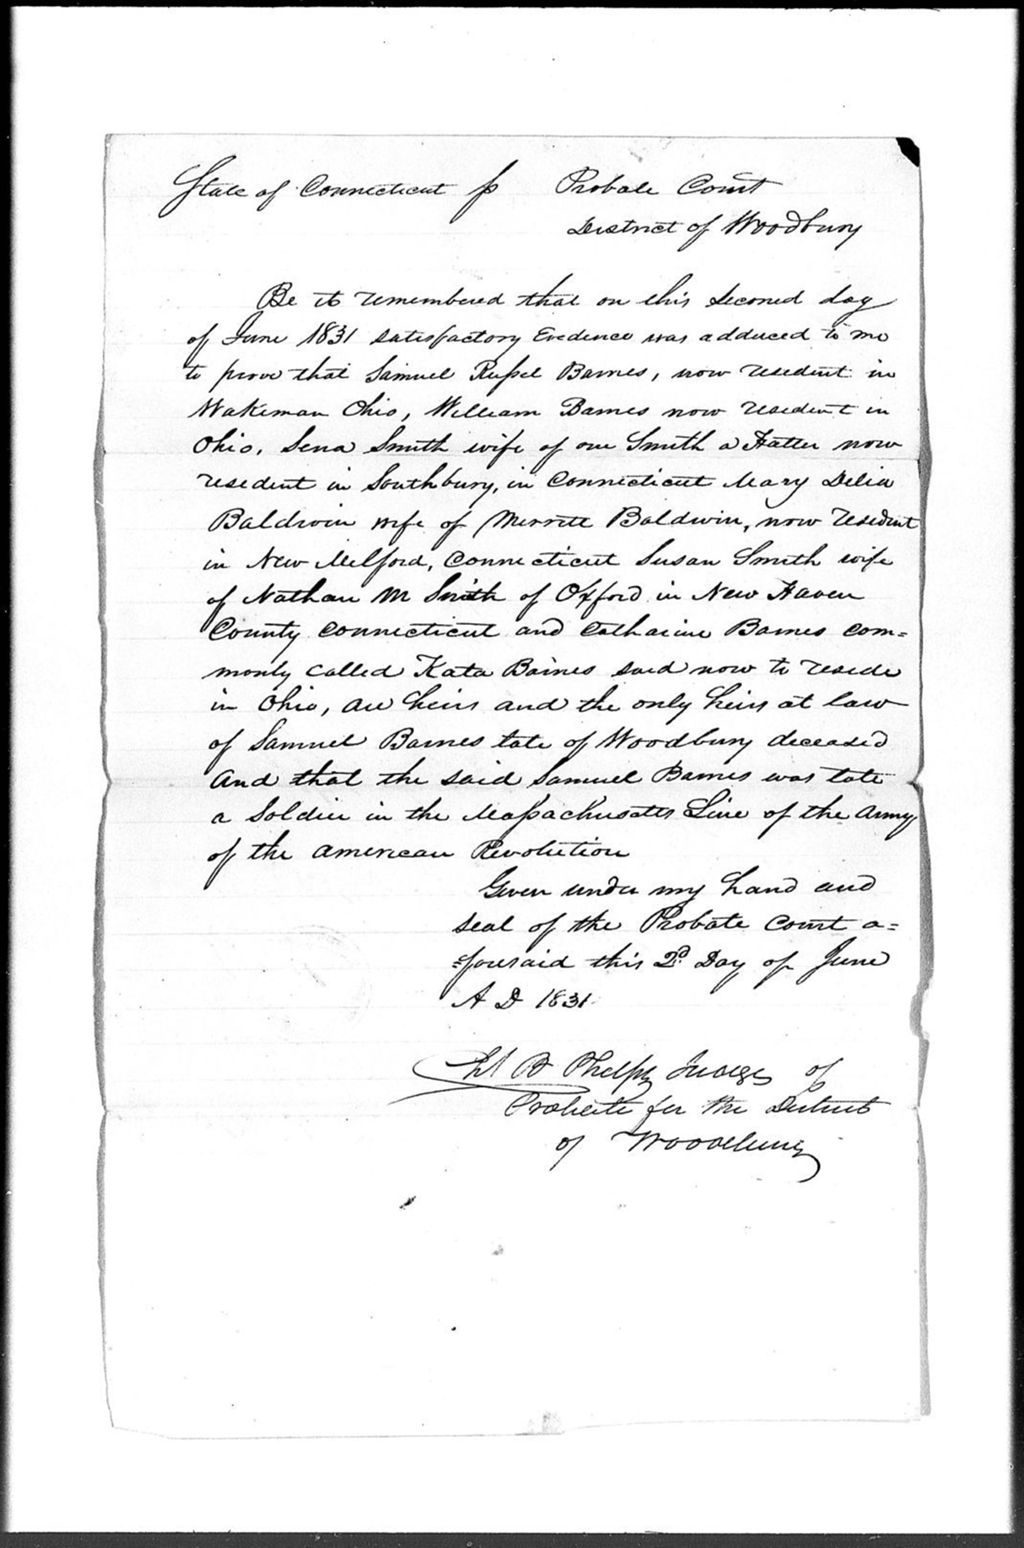 State of Connecticut ss Probate Court
District of Woodbury
Be it remembered that on this seconed day
of June 1831 satisfactory Evedence was adduced to me
to prove that Samuel Russel Barnes, now resedent in
Wakeman Ohio, William Barnes now resedent in
Ohio, Sena Smith wife of one Smith a Hatter now
resedent in Southbury, in Connecticut Mary Delia
Baldwin wife of Merritt Baldwin, now resedent
in New Milford, Connecticut Susan Smith wife
of Nathan M Smith of Oxford in New Haven
County Connecticut and Catharine Barnes com=
monly called Kata Barnes said now to reside
in Ohio, are heirs and the only heirs at law
of Samuel Barnes late of Woodbury deceased
And that the said Samuel Barnes was late
a Soldier in the Massachusetts Line of the Army
of the American Revolution
Given under my hand and
seal of the Probate Court a=
=foresaid this 2d Day of June
A D 1831
B Phelps Judge of
Probate for the District
of Woodbury